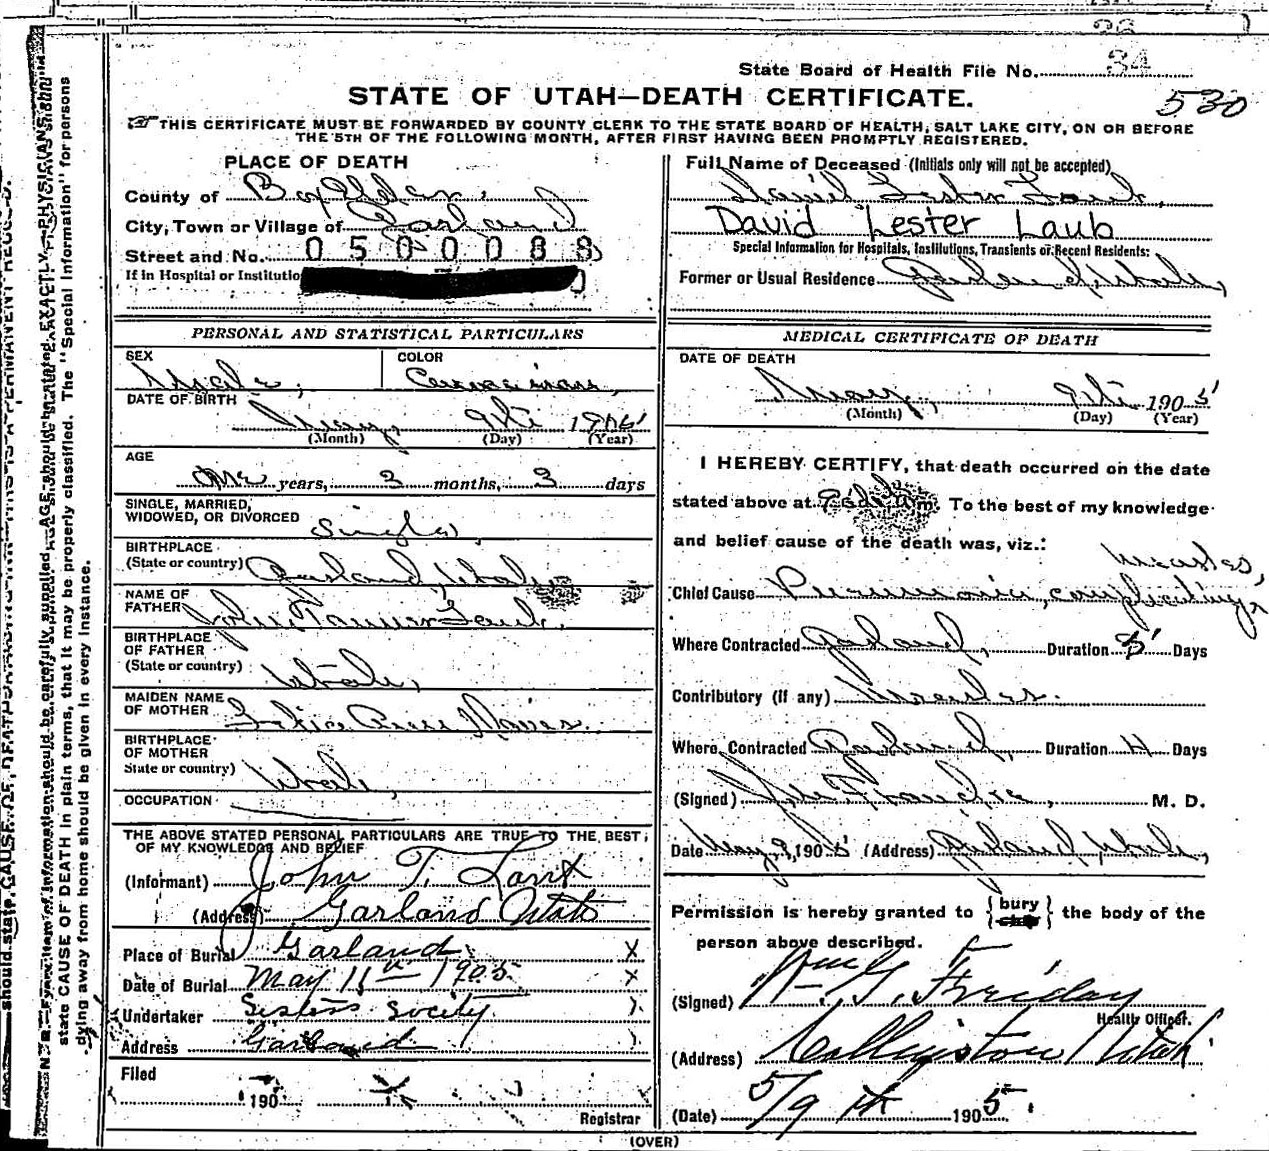 34
State Board of Health File No.
STATE OF UTAH—DEATH CERTIFICATE.
530
THIS CERTIFICATE MUST BE FORWARDED BY COUNTY CLERK TO THE STATE BOARD OF HEALTH, SALT LAKE CITY, ON OR BEFORE
THE 5TH OF THE FOLLOWING MONTH, AFTER FIRST HAVING BEEN PROMPTLY REGISTERED.
PLACE OF DEATH
County of Box Elder
City, Town or Village of Garland
Street and No. 0500088
If in Hospital or Institutio
PERSONAL AND STATISTICAL PARTICULARS
SEX
COLOR
Male,
Caucasian,
DATE OF BIRTH
May, 9th 190
(Month) (Day) (Year)
AGE
years, 3 months, 3 days
SINGLE, MARRIED,
WIDOWED, OR DIVORCED Single,
BIRTHPLACE
(State or country) Garland, Utah
NAME OF
FATHER John Tanner Laub.
BIRTHPLACE
OF FATHER
(State or country) Utah,
MAIDEN NAME
OF MOTHER
BIRTHPLACE
OF MOTHER
State or country) Utah,
OCCUPATION
THE ABOVE STATED PERSONAL PARTICULARS ARE TRUE TO THE BEST
OF MY KNOWLEDGE AND BELIEF
(Informant) John T. Laub
(Address) Garland Utah
Place of Burial Garland X
Date of Burial May 11th 1905 X
Undertaker Sisters Socity
Address Garland
Filed
190
Registrar
Full Name of Deceased (Initials only will not be accepted)
David Lester Laub,
David Lester Laub
Special Information for Hospitals, Institutions, Transients or Recent Residents:
Former or Usual Residence Garland, Utah,
MEDICAL CERTIFICATE OF DEATH
DATE OF DEATH
May, 9th 1905
(Month) (Day) (Year)
I HEREBY CERTIFY, that death occurred on the date
stated above at m. To the best of my knowledge
and belief cause of the death was, viz.:
measles,
Chief Cause Pneumonia, complicating
Where Contracted Garland, Duration 5 Days
Contributory (if any) Measles.
Where Contracted Garland, Duration 4 Days
(Signed) M. D.
Date May 9, 1905 (Address) Garland, Utah,
Permission is hereby granted to {bury} the body of the
person above described.
(Signed) Wm G. Friday
Health Officer.
(Address) Collinston Utah
(Date) 5/9th 1905.
(OVER)
N. B.—Every item of information should be carefully supplied. AGE should be stated EXACTLY. PHYSICIANS should
state CAUSE OF DEATH in plain terms, that it may be properly classified. The "Special Information" for persons
dying away from home should be given in every instance.